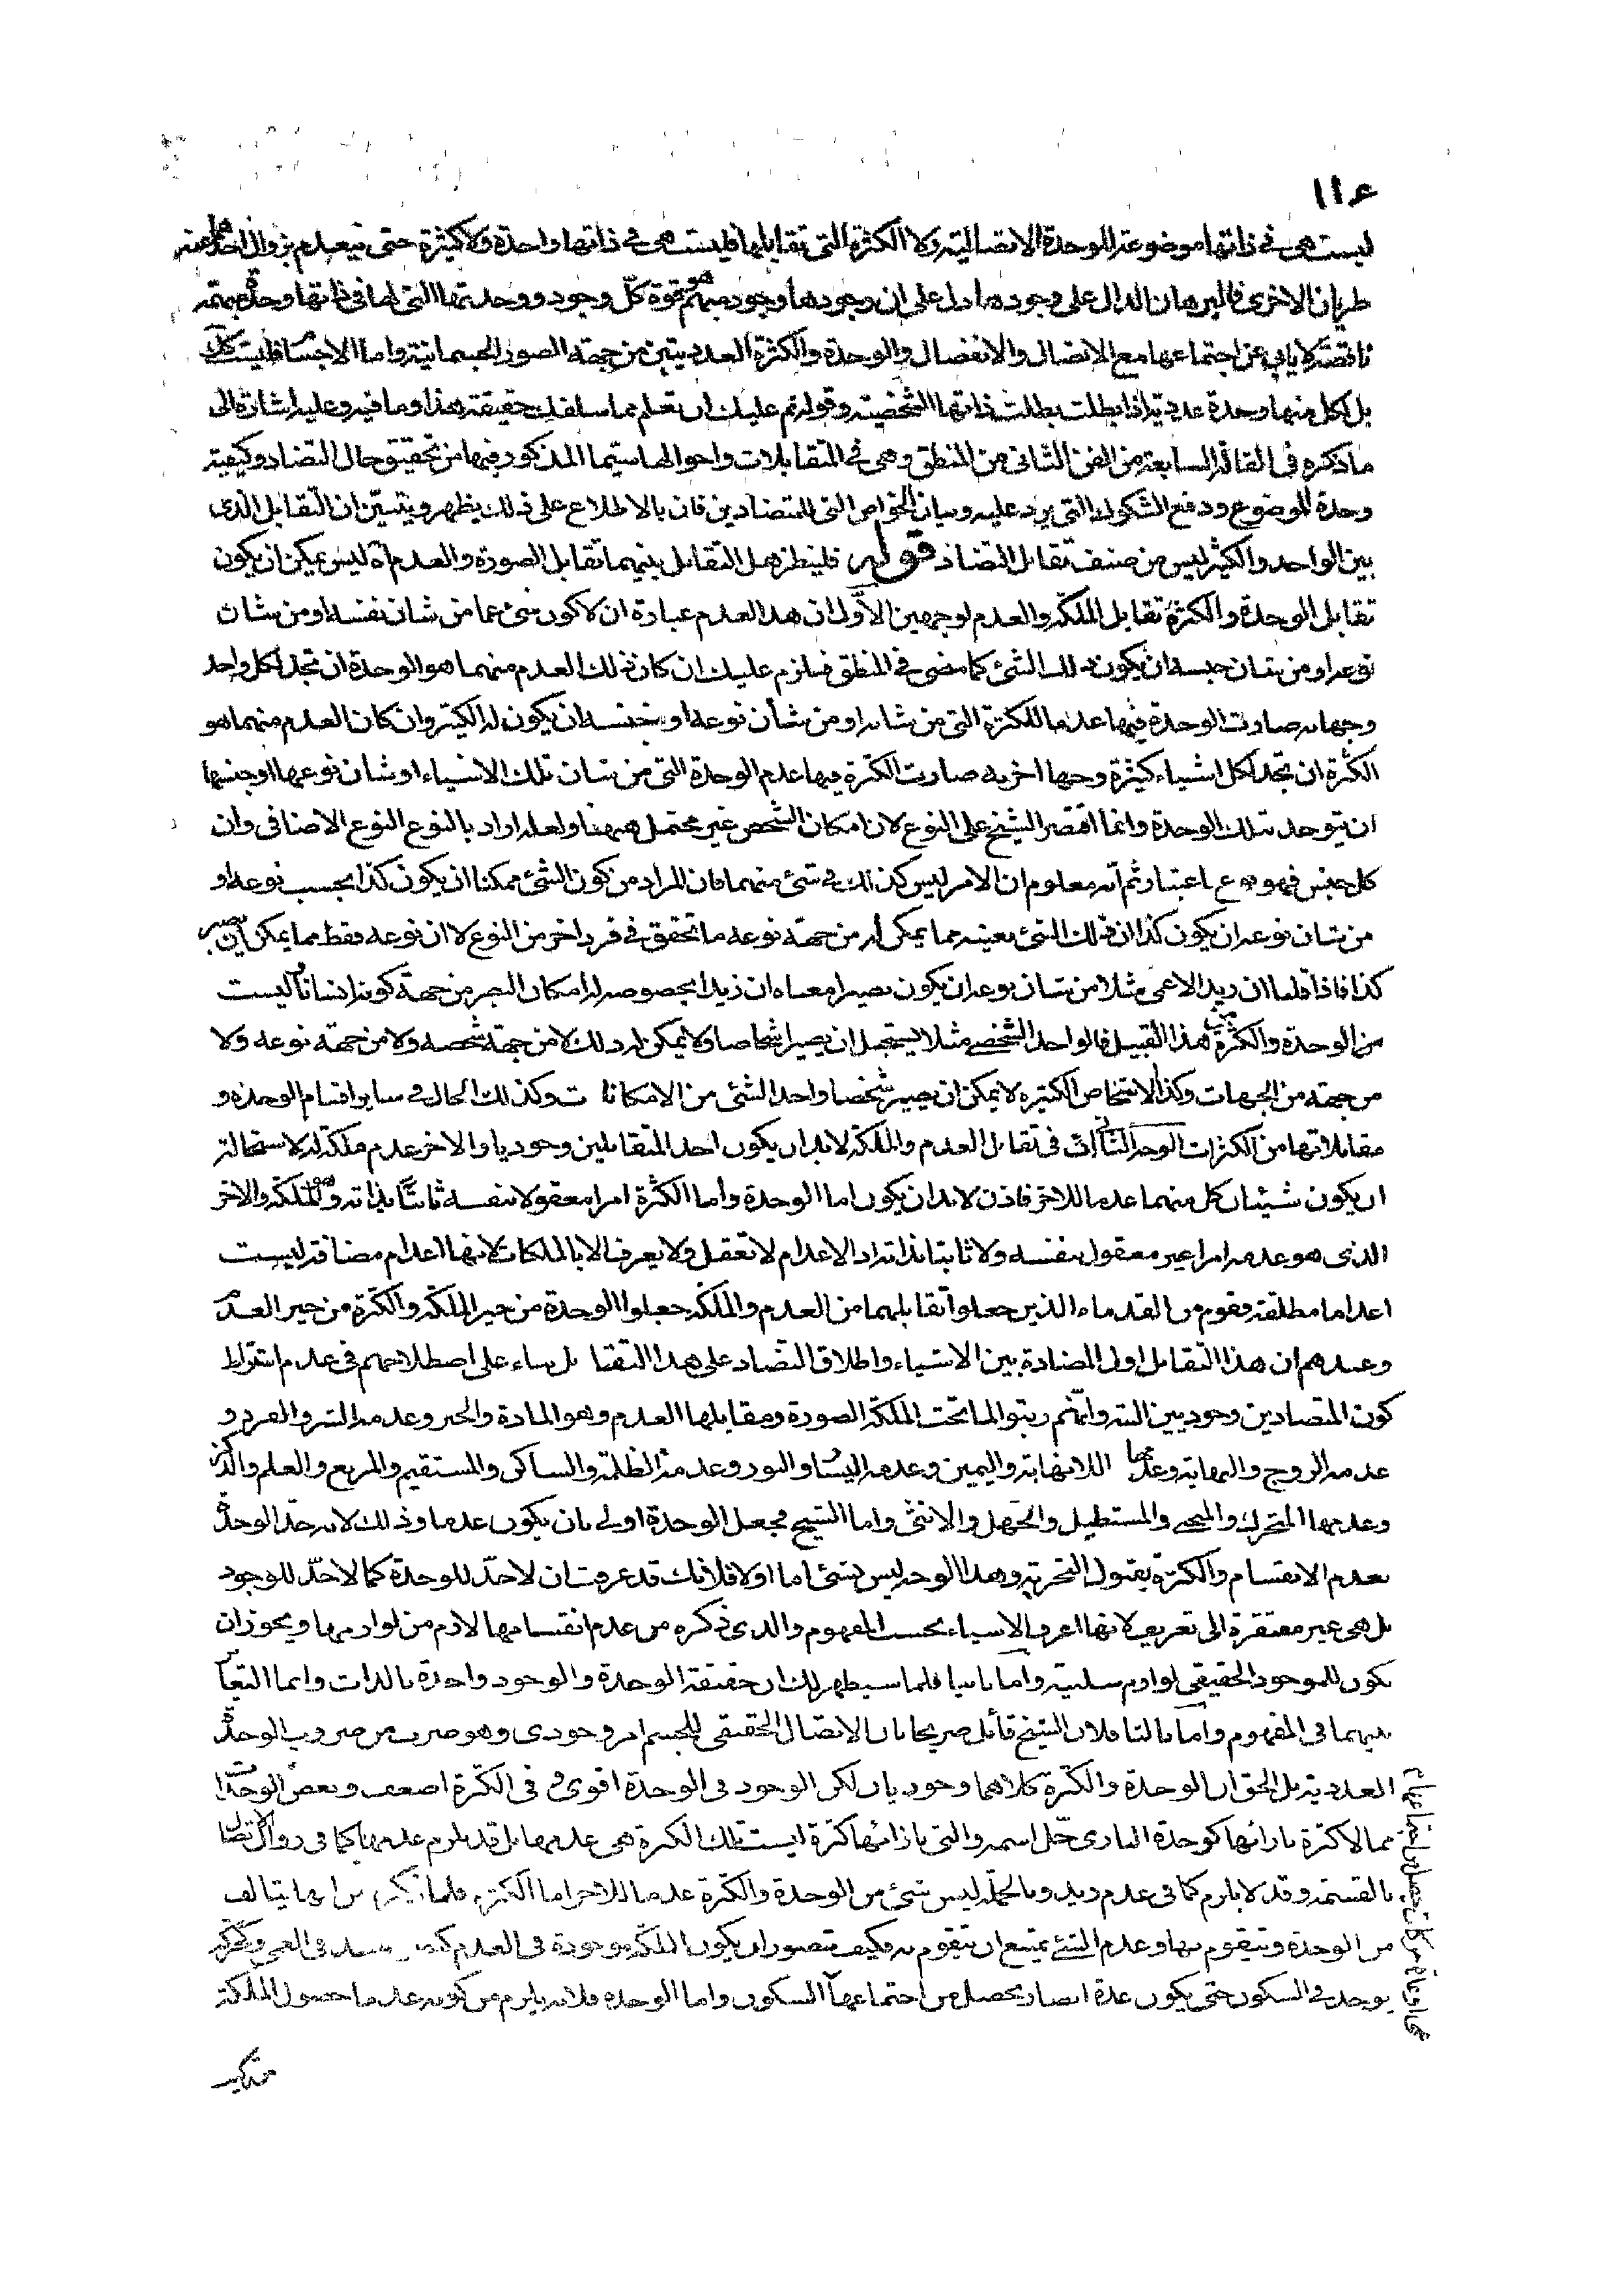 ١١٤
ليست هى في ذاتها موضوعة للوحدة الاتصالية ولا الكثرة التى تقابلها فليست هى في ذاتها واحدة ولا كثيرة حتى ينعدم بزوال احدهما عند
طريان الاخرى فالبرهان الدال على وجودها دل على ان وجودها وجود مبهم هو قوة كل وجود ووحدتها التى لها فى ذاتها وحدة مبهمة
ناقصة لا يابى عن اجتماعها مع الاتصال والانفصال والوحدة والكثرة العدديتين من جهة الصور الجسمانية واما الاجسام فليست كك
بل لكل منها وحدة عددية اذا بطلت بطلت ذاتها الشخصية وقوله ثم عليك ان تعلم مما سلف لك حقيقة هذا وما فيه وعليه اشارة الى
ما ذكره فى المقالة السابعة من الفن الثانى من المنطق وهى في المتقابلات واحوالها سيما المذكور فيها من تحقيق حال التضاد وكيفية
وحدة الموضوع ودفع الشكوك التى يرد عليه وبيان الخواص التى للمتضادين فان بالاطلاع على ذلك يظهر ويتبين ان التقابل الذى
بين الواحد والكثير ليس من صنف تقابل التضاد قوله فلينظر هل التقابل بينهما تقابل الصورة والعدم آه ليس يمكن ان يكون
تقابل الوحدة والكثرة تقابل الملكة والعدم لوجهين الاول ان هذا العدم عبارة ان لا كون شئ عما من شان نفسه او من شان
نوعه او من شان جنسه ان يكون ذلك الشئ كما مضى في المنطق فيلزم عليك ان كان ذلك العدم منهما هو الوحدة ان تجد لكل واحد
وجها به صارت الوحدة فيها عدما للكثرة التى من شانه او من شأن نوعه او جنسه ان يكون له الكثير وان كان العدم منهما هو
الكثرة ان تجد لكل اشياء كثيرة وجها اخر به صارت الكثرة فيها عدم الوحدة التى من شان تلك الاشياء او شان نوعها او جنسها
ان يتوحد بتلك الوحدة وانما اقتصر الشيخ على النوع لان امكان الشخص غير محتمل ههنا ولعله اراد بالنوع النوع الاضافى وان
كل جنس فهو نوع باعتبار ثم انه معلوم ان الامر ليس كذلك في شئ منهما فان المراد من كون الشئ ممكنا ان يكون كذا بحسب نوعه او
من شان نوعه ان يكون كذا ان ذلك الشئ بعينه مما يمكن له من جهة نوعه ما تحقق في فرد اخر من النوع لا ان نوعه فقط مما يمكن ان يصير
كذا فاذا قلنا ان زيد الاعمى مثلا من شان نوعه ان يكون بصيرا معناه ان زيدا بخصوصه له امكان البصر من جهة كونه انسانا وليست
من الوحدة والكثرة هذا القبيل فالواحد الشخصى مثلا يستحيل ان يصير اشخاصا ولا يمكن له ذلك لا من جهة شخصه ولا من جهة نوعه ولا
من جهة من الجهات وكذا الاشخاص الكثيرة لا يمكن ان يصير شخصا واحدا لشئ من الامكانات وكذلك الحال في ساير اقسام الوحدة و
مقابلاتها من الكثرات الوجه الثانى ان فى تقابل العدم والملكة لا بد ان يكون احد المتقابلين وجوديا والاخر عدم ملكة له لاستحالة
ان يكون شيئان كل منهما عدما للاخر فاذن لا بد ان يكون اما الوحدة واما الكثرة امرا معقولا بنفسه ثابتا بذاته وهو الملكة والاخر
الذى هو عدمه امرا غير معقول بنفسه ولا ثابتا بذاته اذ الاعدام لا تعقل ولا يعرف الا بالملكات لانها اعدام مضافة ليست
اعداما مطلقة وقوم من القدماء الذين جعلوا تقابلهما من العدم والملكة جعلوا الوحدة من حيز الملكة والكثرة من حيز العدم
وعندهم ان هذا التقابل اول المضادة بين الاشياء واطلاق التضاد على هذا التقابل بناء على اصطلاحهم فى عدم اشتراط
كون المتضادين وجوديين البتة وانهم رتبوا لما تحت الملكة الصورة ومقابلها العدم وهو المادة والخير وعدمه الشر والفرد و
عدمه الزوج والنهاية وعدمها اللانهاية واليمين وعدمه اليسار والنور وعدمه الظلمة والساكن والمستقيم والمربع والعلم والذكر
وعدمها المتحرك والمنحنى والمستطيل والجهل والانثى واما الشيخ فجعل الوحدة اولى بان يكون عدما وذلك لانه حد الوحدة
بعدم الانقسام والكثرة بقبول التجزية وهذا الوجه ليس بشئ اما اولا فلانك قد عرفت ان لا حد للوحدة كما لا حد للوجود
بل هى غير مفتقرة الى تعريف لانها اعرف الاشياء بحسب المفهوم والذى ذكره من عدم انقسامها لازم من لوازمها ويجوز ان
يكون للموجود الحقيقى لوازم سلبية واما ثانيا فلما سيظهر لك ان حقيقة الوحدة والوجود واحدة بالذات وانما التغاير
بينهما فى المفهوم واما ثالثا فلان الشيخ قائل صريحا بان الاتصال الحقيقى للجسم امر وجودى وهو ضرب من ضروب الوحدة
العددية بل الحق ان الوحدة والكثرة كلاهما وجوديان لكن الوجود فى الوحدة اقوى و فى الكثرة اضعف وبعض الوحدات
مما لا كثرة بازائها كوحدة البارى جل اسمه والتى بازائها كثرة ليست تلك الكثرة هى عدمها بل قد يلزم عدمها كما فى زوال الاتصال
بالقسمة وقد لا يلزم كما فى عدم زيد وبالجملة ليس شئ من الوحدة والكثرة عدما للاخر اما الكثرة فلما ذكره من انها يتالف
من الوحدة ويتقوم بها وعدم الشئ يمتنع ان يتقوم به وكيف يتصور ان يكون الملكة موجودة فى العدم فى العمى وحركة
يوجد في السكون حتى يكون عدة ابصار يحصل من اجتماعها السكون واما الوحدة فلانه يلزم من كونه عدما حصول الملكة